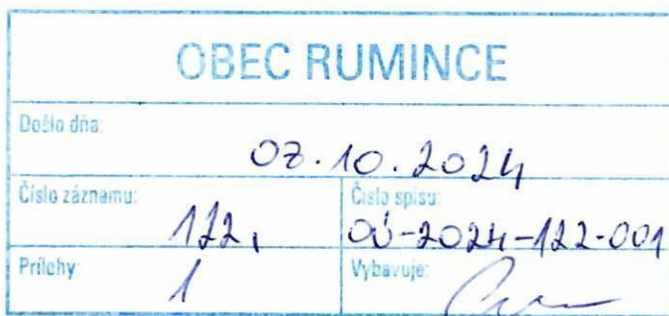 OBEC RUMINCE
Došlo dňa:
07.10.2024
Číslo záznamu: Číslo spisu:
122, OÚ-2024-122-001
Prílohy: Vybavuje:
1